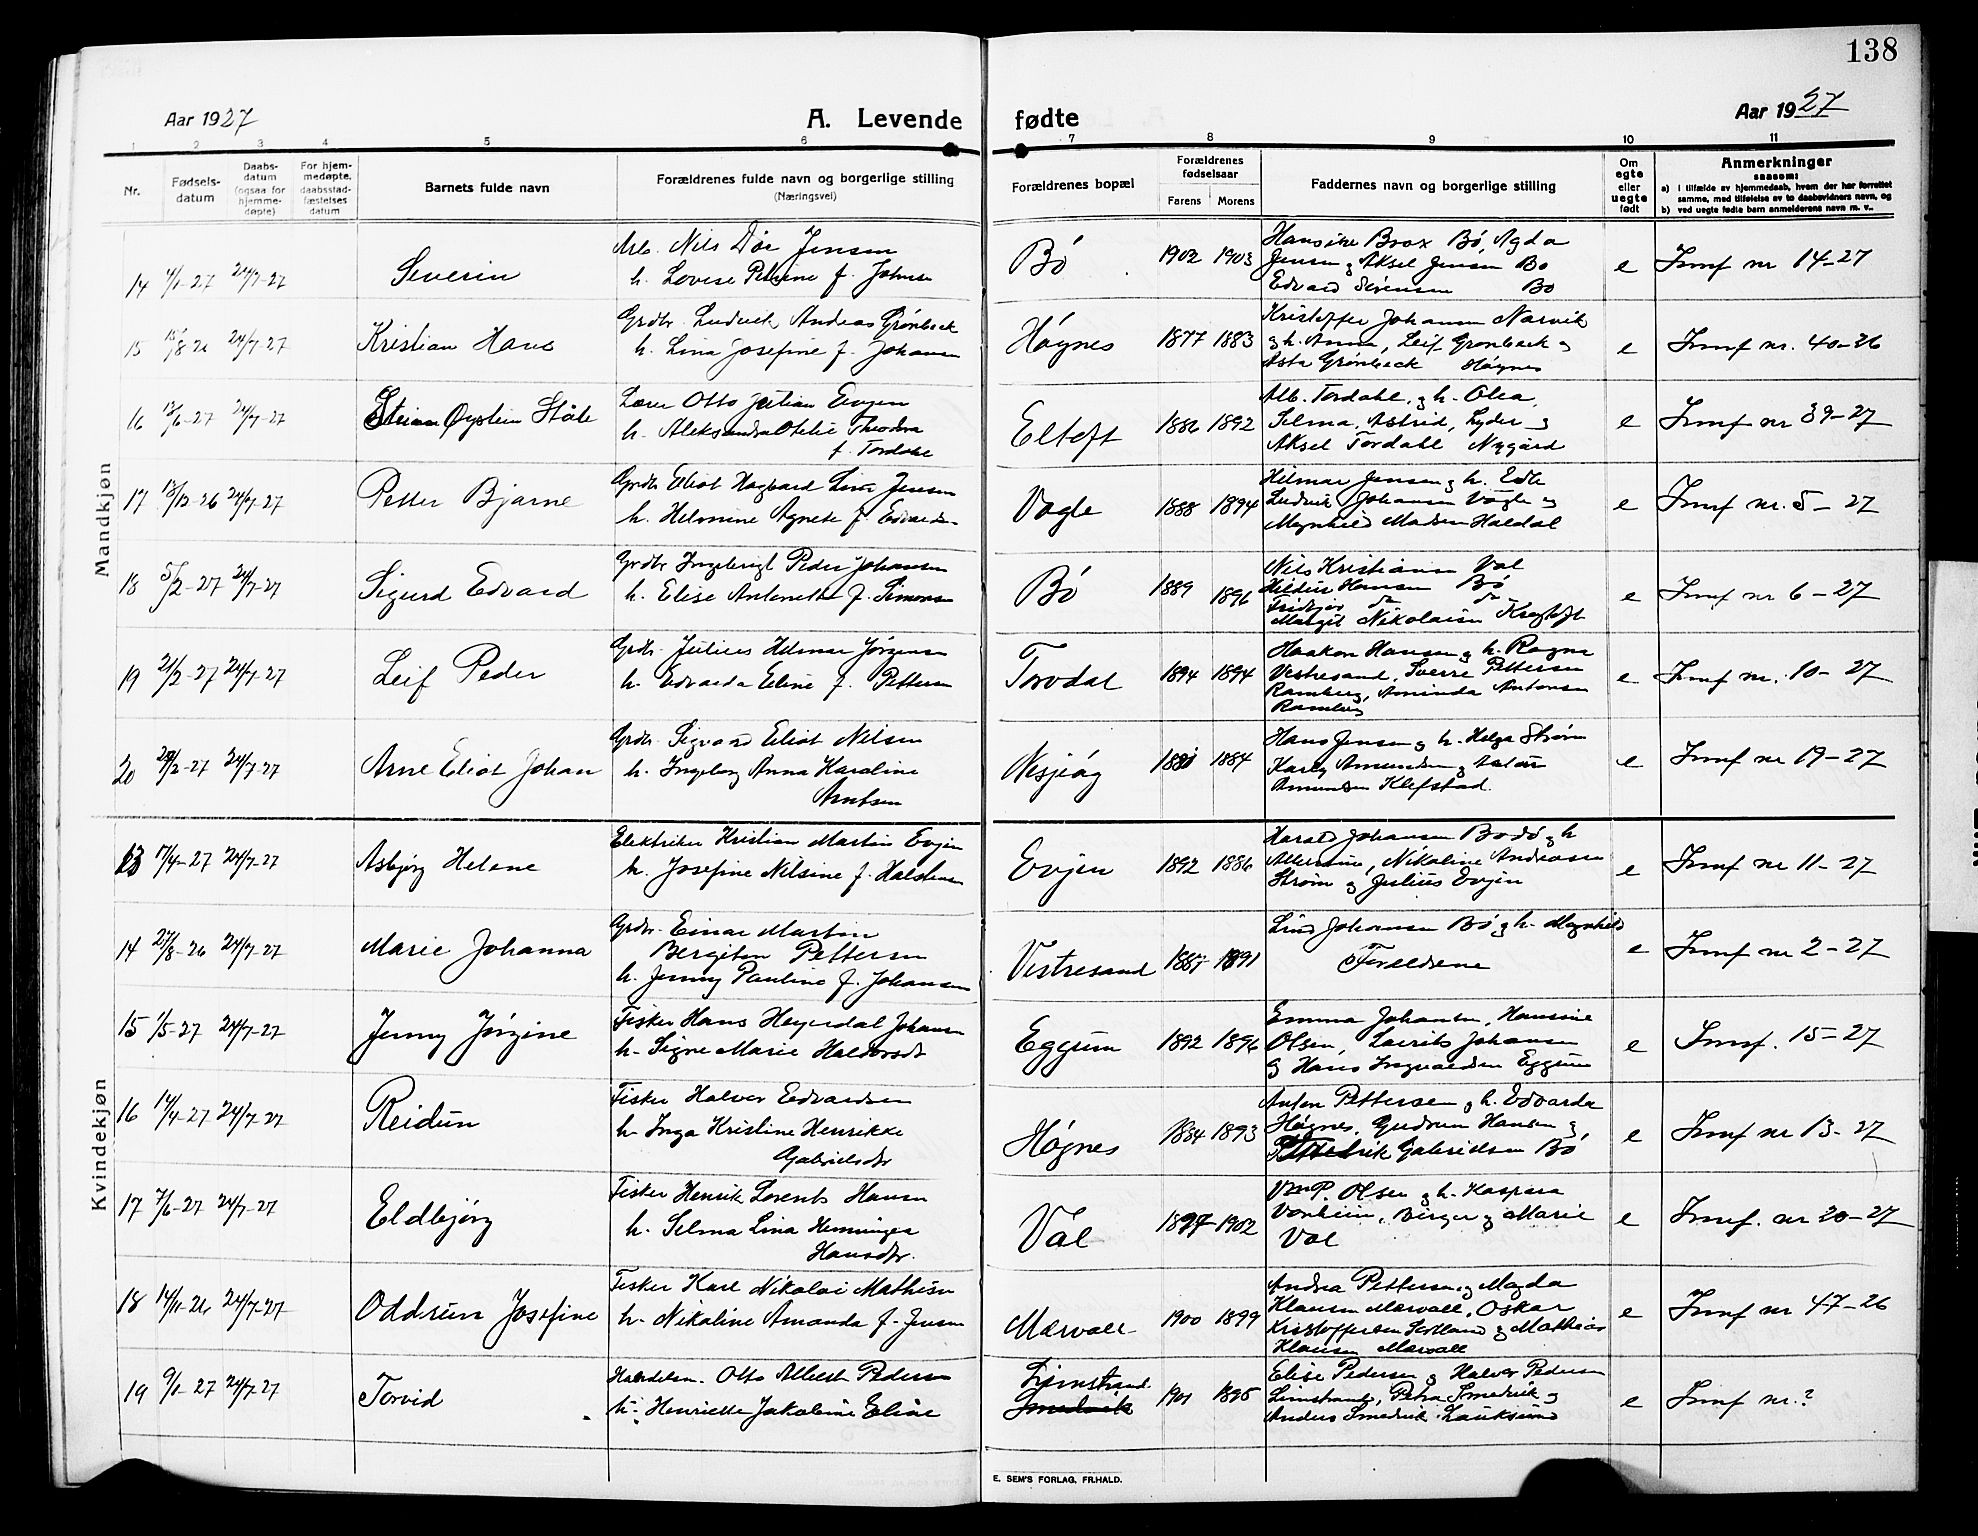 138
Aar 1927
A. Levende fødte
Aar 1927
1 2 3 4 5 6 7 8 9 10 11
Nr.
Fødsels-
datum
Daabs-
datum
(ogsaa for
hjemme-
døpte)
For hjem-
medøpte,
daabsstad-
fæstelses
datum
Barnets fulde navn
Forældrenes fulde navn og borgerlige stilling
(Næringsvei)
Forældrenes bopæl
Forældrenes
fødselsaar
Farens Morens
Faddernes navn og borgerlige stilling
Om
egte
eller
uegte
født
Anmerkninger
saasom:
a) i tilfælde av hjemmedaab, hvem der har forrettet
samme, med tilføielse av to daabsvidners navn, og
b) ved uegte fødte barn anmelderens navn m. v..
Mandkjøn
14 4/1-27 24/7-27 Severin
Arb. Nils Dør Jensen
h. Lovise Petrine f. Johnsen
Bö 1902 1903
Hansine Brox Bö, Agda
Jensen og Aksel Jensen Bö
Edvard Sörensen Bö
e Innf nr 14-27
15 15/8-26 24/7-27 Kristian Hans
Grdbr. Ludvik Andreas Grönbeck
h. Lina Josefine f. Johansen
Høgnes 1877 1883
Kristoffer Johansen Narvik
og h. Anna, Leif Grönbeck og
Asta Grönbeck Høgnes
e Innf nr. 40-26
16 12/6-27 24/7-27 Steinar Øystein Ståle
Lærer Otto Julian Evjen
h. Aleksandra Otelie Theodora
f. Tordahl
Eltoft 1886 1892
Alb. Tordahl, og h. Olea,
Selma, Astrid, Lyder og
Aksel Tordahl Nygård
e Innf nr 39-27
17 12/12-26 24/7-27 Petter Bjarne
Grdbr Eliot Hagbard Lind Jensen
h. Helmine Agnete f. Edvardsen
Vagle 1888 1894
Hilmar Jensen og h. Edle
Ludvik Johansen Vagle og
Magnhild Madsen Haldal
e Innf nr. 5-27
18 5/2-27 24/7-27 Sigurd Edvard
Grdbr Ingebrigt Peder Johansen
h. Elise Antonette f. Simonsen
Bö 1889 1896
Nils Kristiansen Val
Hansen Bö
do do
Margit Nikolaisen
e Innf nr 6-27
19 21/2-27 24/7-27 Leif Peder
Grdbr. Julius Helmer Jørgensen
h. Edvarda Eline f. Pettersen
Torvdal 1894 1894
Haakon Hansen og h. Ragna
Vestresand, Sverre Pettersen
Ramberg, Aminda Antonsen
Ramberg
e Innf nr. 10-27
20 24/7-27 Arne Eliot Johan
Grdbr. Sigvard Eliot Nilsen
h. Ingeborg Anna Karoline
Arntsen
1884
Hans Jensen og h. Helga Strøm
Karly Amundsen og
Amundsen Klefstad.
e Innf nr 19-27
Kvindekjøn
13 17/4-27 24/7-27 Asbjørg Helene
Elektriker Kristian Martin Evjen
h. Josefine Nilsine f. Halstensen
Evjen 1892 1886
Harald Johansen Bodö og h
Albertine, Nikoline Andreasen
Ström og Julius Evjen
e Innf nr 11-27
14 27/8-26 24/7-27 Marie Johanna
Grdbr. Einar Martin
Bergiton Pettersen
h. Jenny Pauline f. Johansen
Vestresand 1887 1891
Lind Johansen Bö og h. Magnhild
Foreldrene
e Innf nr 2-27
15 1/5-27 24/7-27 Jenny Jørgine
Fisker Hans Heyerdal Johansen
h. Signe Marie Haldorsdt
Eggum 1892 1896
Emma Johansen, Hansine
Olsen, Laurits Johansen
og Hans Ingvaldsen Eggum
e Innf. 15-27
16 14/4-27 24/7-27 Reidun
Fisker Halvor Edvardsen
h. Inga Kristine Henrikke
Gabrielsdtr
Høgnes 1884 1893
Anton Pettersen og h. Edvarda
Høgnes, Gudrun Hansen og
Fredrik Gabrielsen Bö
e Innf nr 13-27
17 7/6-27 24/7-27 Eldbjørg
Fisker Henrik Lorents Hansen
h. Selma Lina Henninges
Hansdtr.
Val 1897 1902
Vm P. Olsen og h. Kaspara
Vonheim, Birger og Marie
Val
e Innf. nr 20-27
18 14/11-26 24/7-27 Oddrun Josefine
Fisker Karl Nikolai Mathisen
h. Nikoline Amanda f. Jensen
Mærvoll 1900 1899
Andrea Pettersen og Magda
Klausen Mærvoll, Oskar
Kristoffersen Sortland og Mathias
Klausen Mærvoll
e Innf nr 47-26
19 9/1-27 24/7-27 Torvid
Handelsm. Otto Albert Pedersen
h. Henriette Jakobine Eline
Limstrand
Smedvik
1901 1895
Elise Pedersen og Halvor Pedersen
Limstrand, Petra Smedvik og
Anders Smedvik Lauksund
e Innf nr. ?
E. SEM'S FORLAG, FR.HALD.